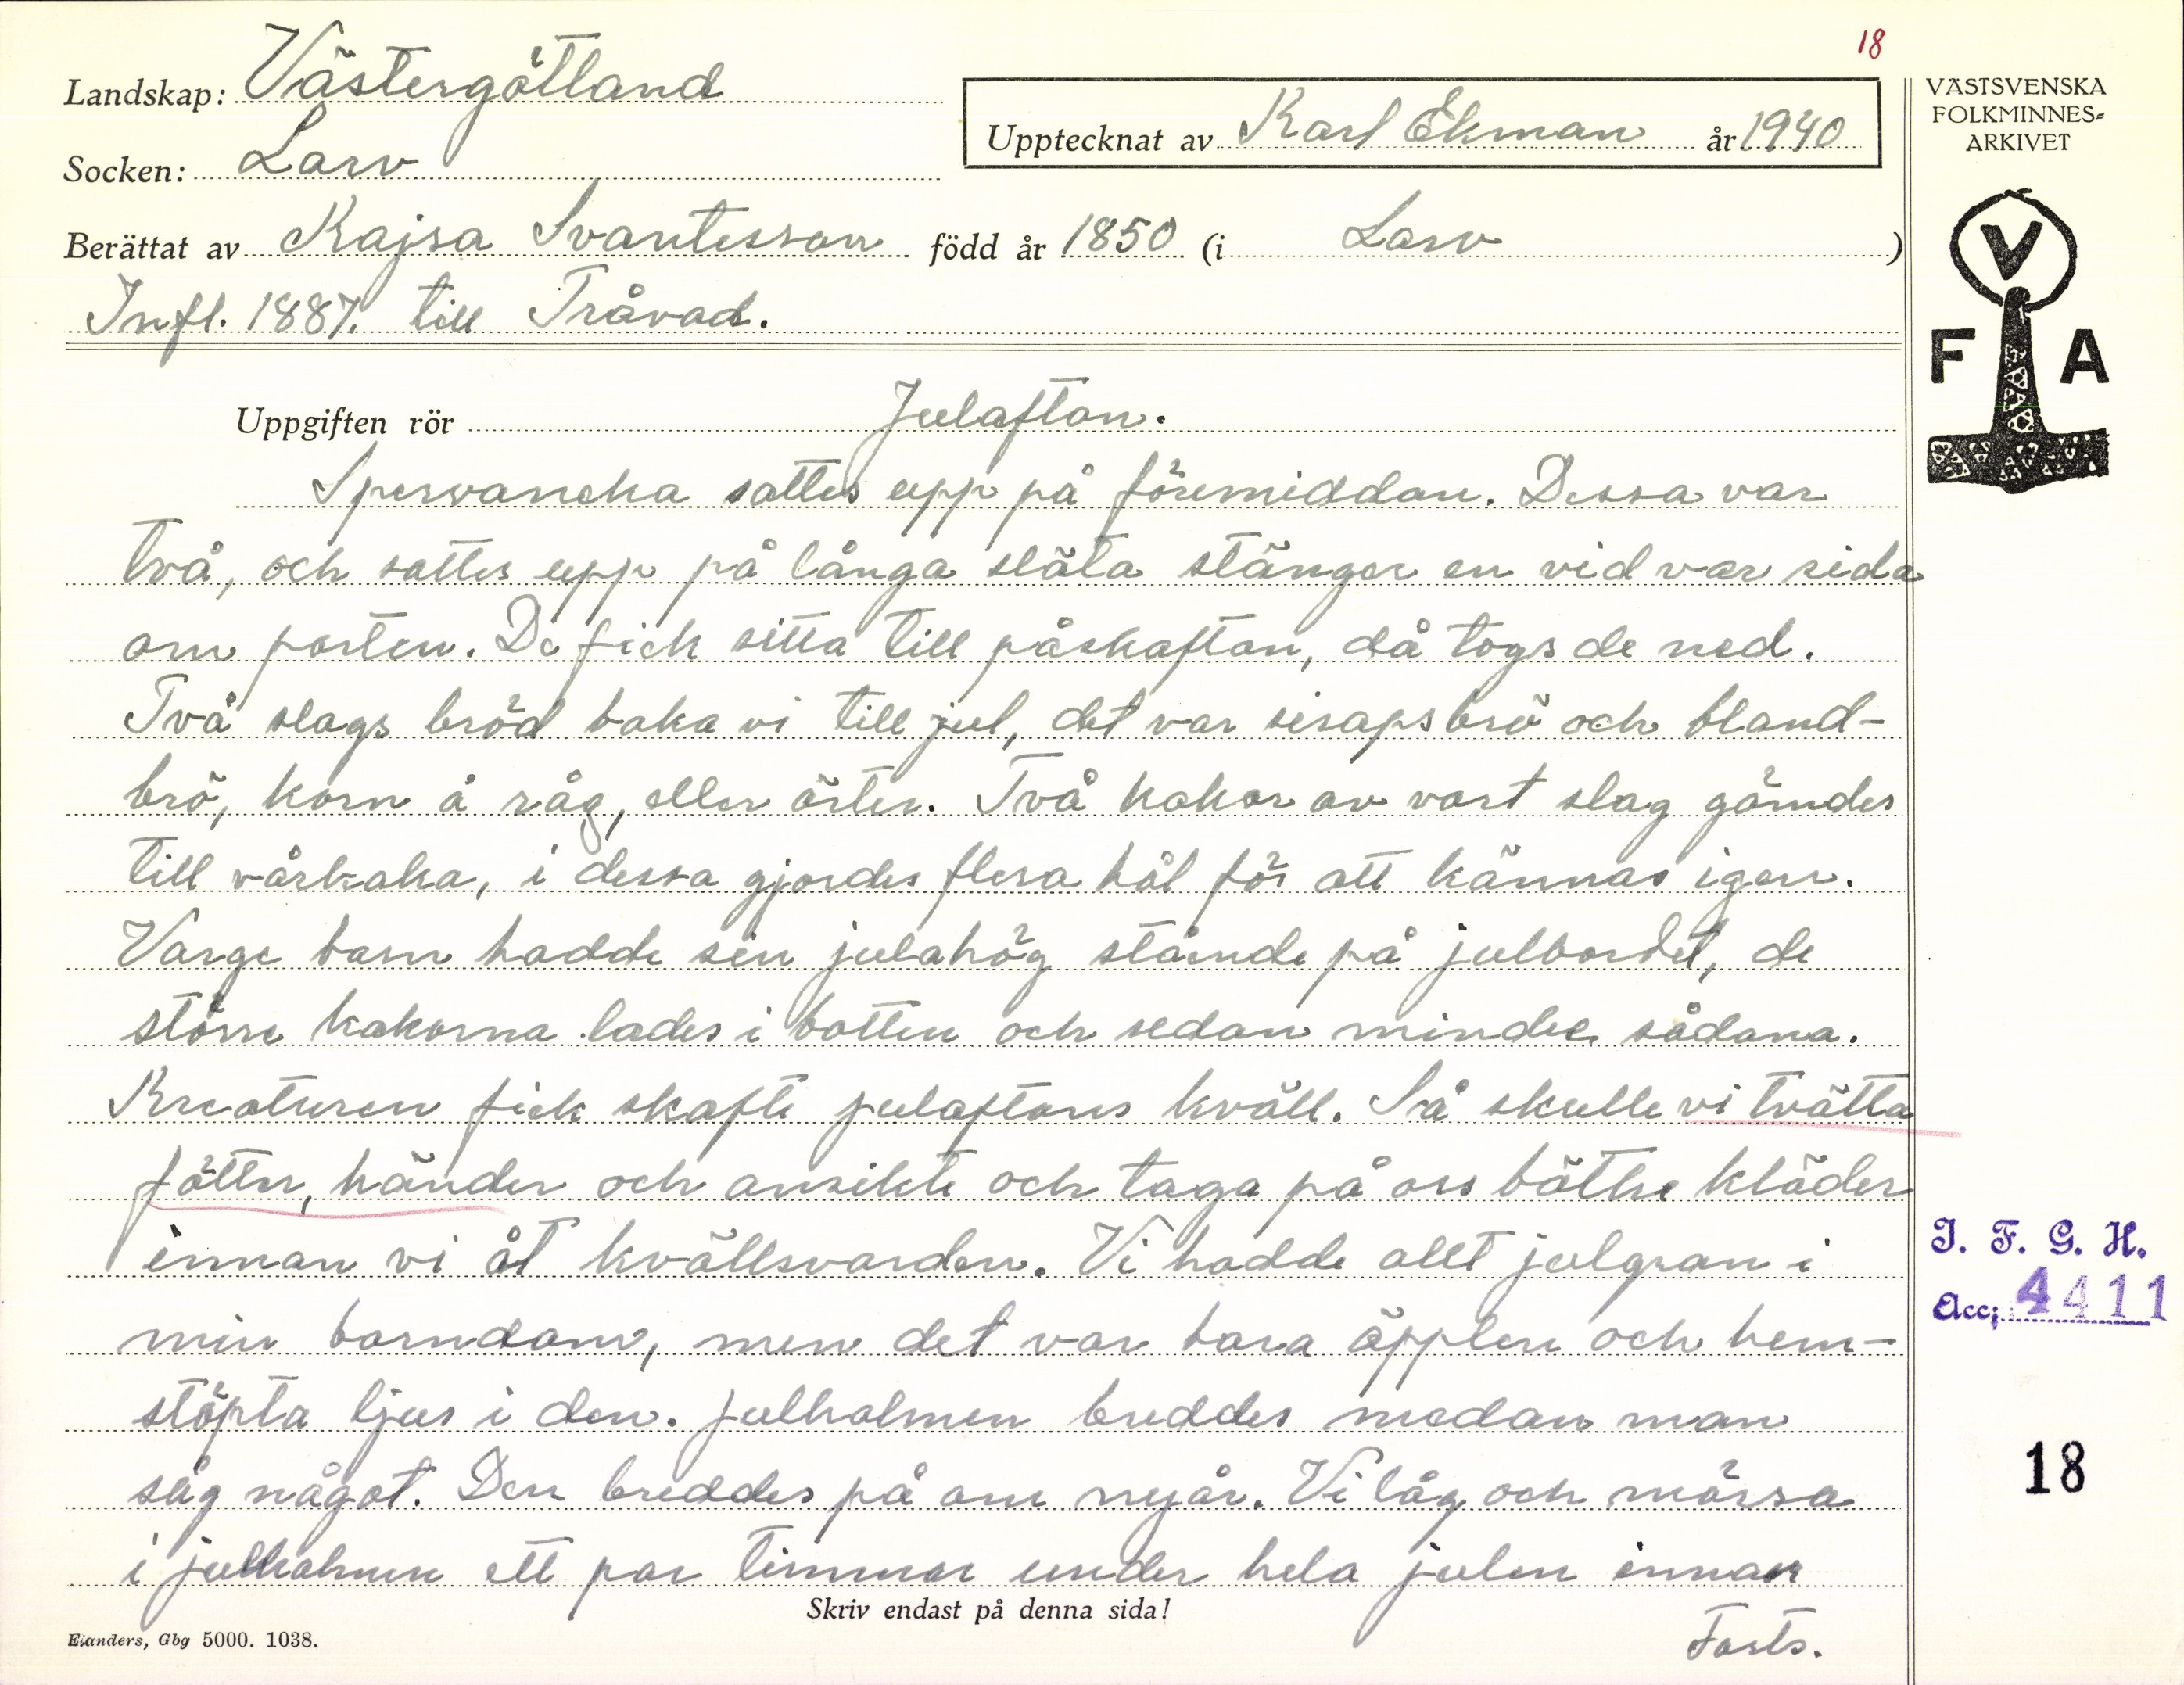 18
Landskap: Västergötland
Upptecknat av Karl Ekman år 1940
Socken: Larv
Berättat av Kajsa Svantesson född år 1850 (i Larv)
Infl. 1887. till Tråvad.
VÄSTSVENSKA
FOLKMINNES-
ARKIVET
V
F A
Uppgiften rör Julafton.
Spervaneka sattes upp på föremiddan. Dessa var
två, och sattes upp på långa släta stänger en vid var sida
om porten. De fick sitta till påskafton, då togs de ned.
Två slags bröd baka vi till jul, det var sirapsbrö och bland-
brö, korn å råg, eller ärter. Två kakor av vart slag gömdes
till vårkaka, i dessa gjordes flera hål för att kännas igen.
Varge barn hadde sin julahög stående på julbordet, de
större kakorna lades i botten och sedan mindre sådana.
Kreaturen fick skafte julaftons kväll. Så skulle vi tvätta
fötter, händer och ansikte och taga på oss bättre kläder
innan vi åt kvällsvarden. Vi hadde allt julgran i
min barndom, men det var bara äpplen och hem-
stöpta ljus i den. Julhalmen breddes medan man
såg något. Den breddes på om nyår. Vi låg och mörsa
i julhalmen ett par timmar under hela julen innan
Skriv endast på denna sida!
Forts.
Elanders, Gbg 5000. 1038.
I. F. G. H.
Acc; 4411
18